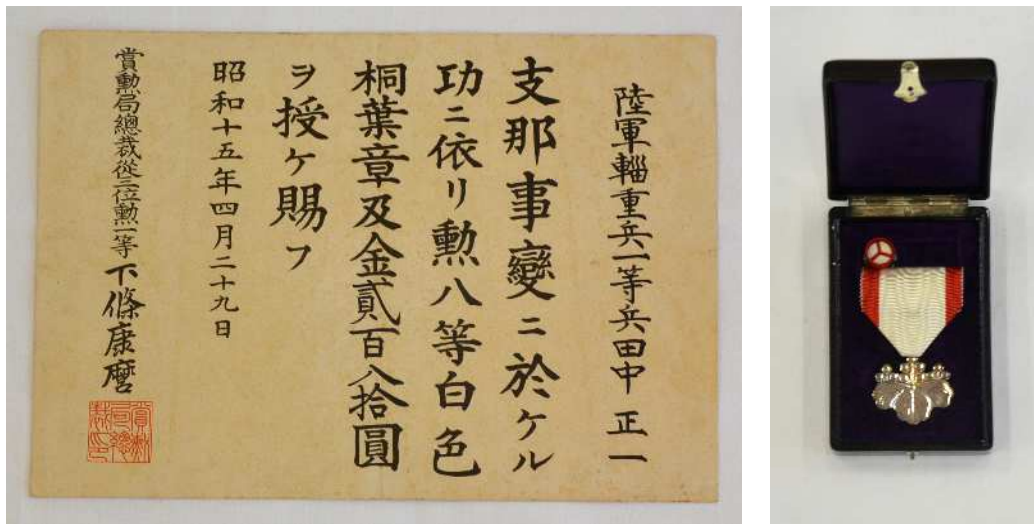 陸軍輜重兵一等兵田中正一
支那事變ニ於ケル
功ニ依リ勲八等白色
桐葉章及金貳百八拾圓
ヲ授ケ賜フ
昭和十五年四月二十九日
賞勲局總裁從三位勲一等下條康麿
賞勲
局總
裁印